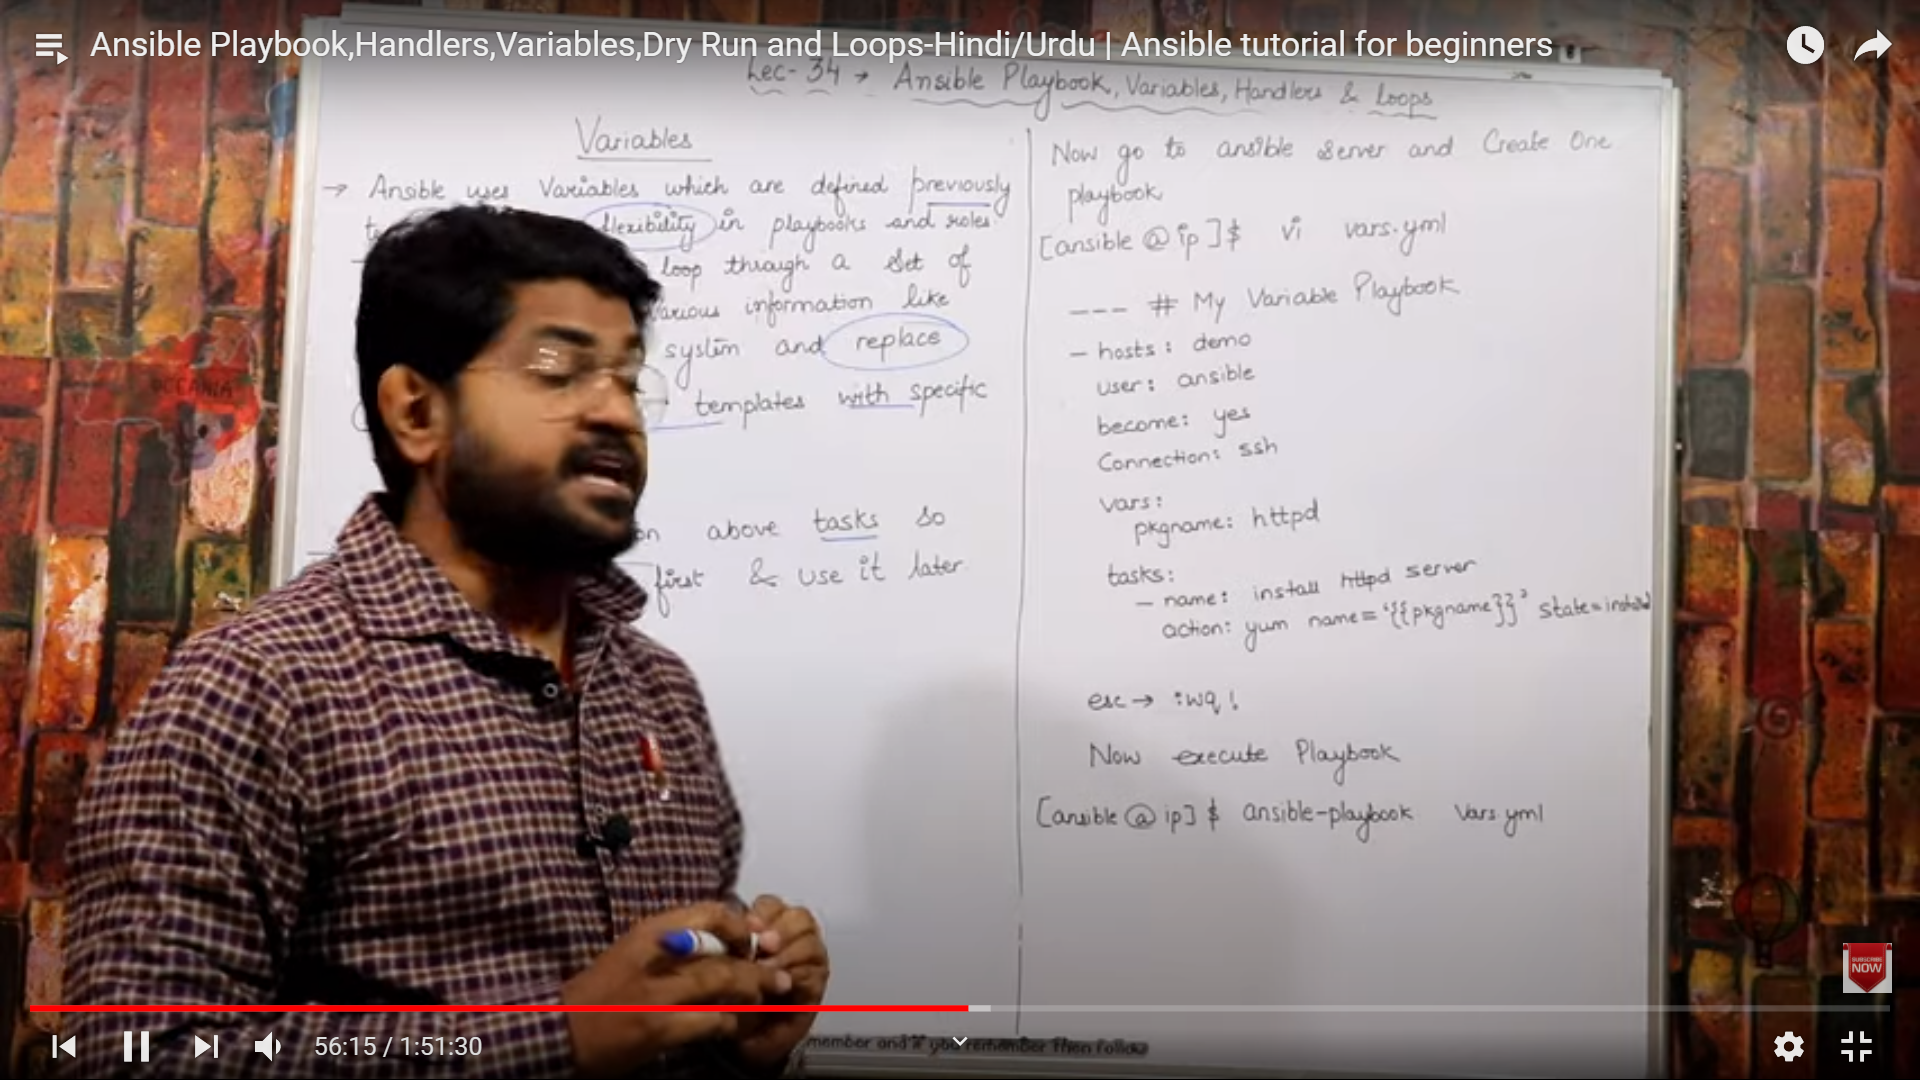 Ansible Playbook,Handlers,Variables,Dry Run and Loops-Hindi/Urdu | Ansible tutorial for beginners
Lec- 34 → Ansible Playbook, Variables, Handlers & Loops
Variables
→ Ansible uses Variables which are defined previously
flexibility in playbooks and roles
loop through a set of
various information like
system and replace
templates with specific
above tasks so
first & use it later
Now go to ansible server and Create One
playbook
[ansible @ ip ]$ vi vars.yml
--- # My Variable Playbook
- hosts: demo
user: ansible
become: yes
Connection: ssh
vars:
pkgname: httpd
tasks:
- name: install httpd server
action: yum name='{{pkgname}}' state=installed
esc → :wq!
Now execute Playbook
[ansible @ ip] $ ansible-playbook Vars.yml
OCEANIA
SUBSCRIBE
NOW
56:15 / 1:51:30
member and if you remember then follow